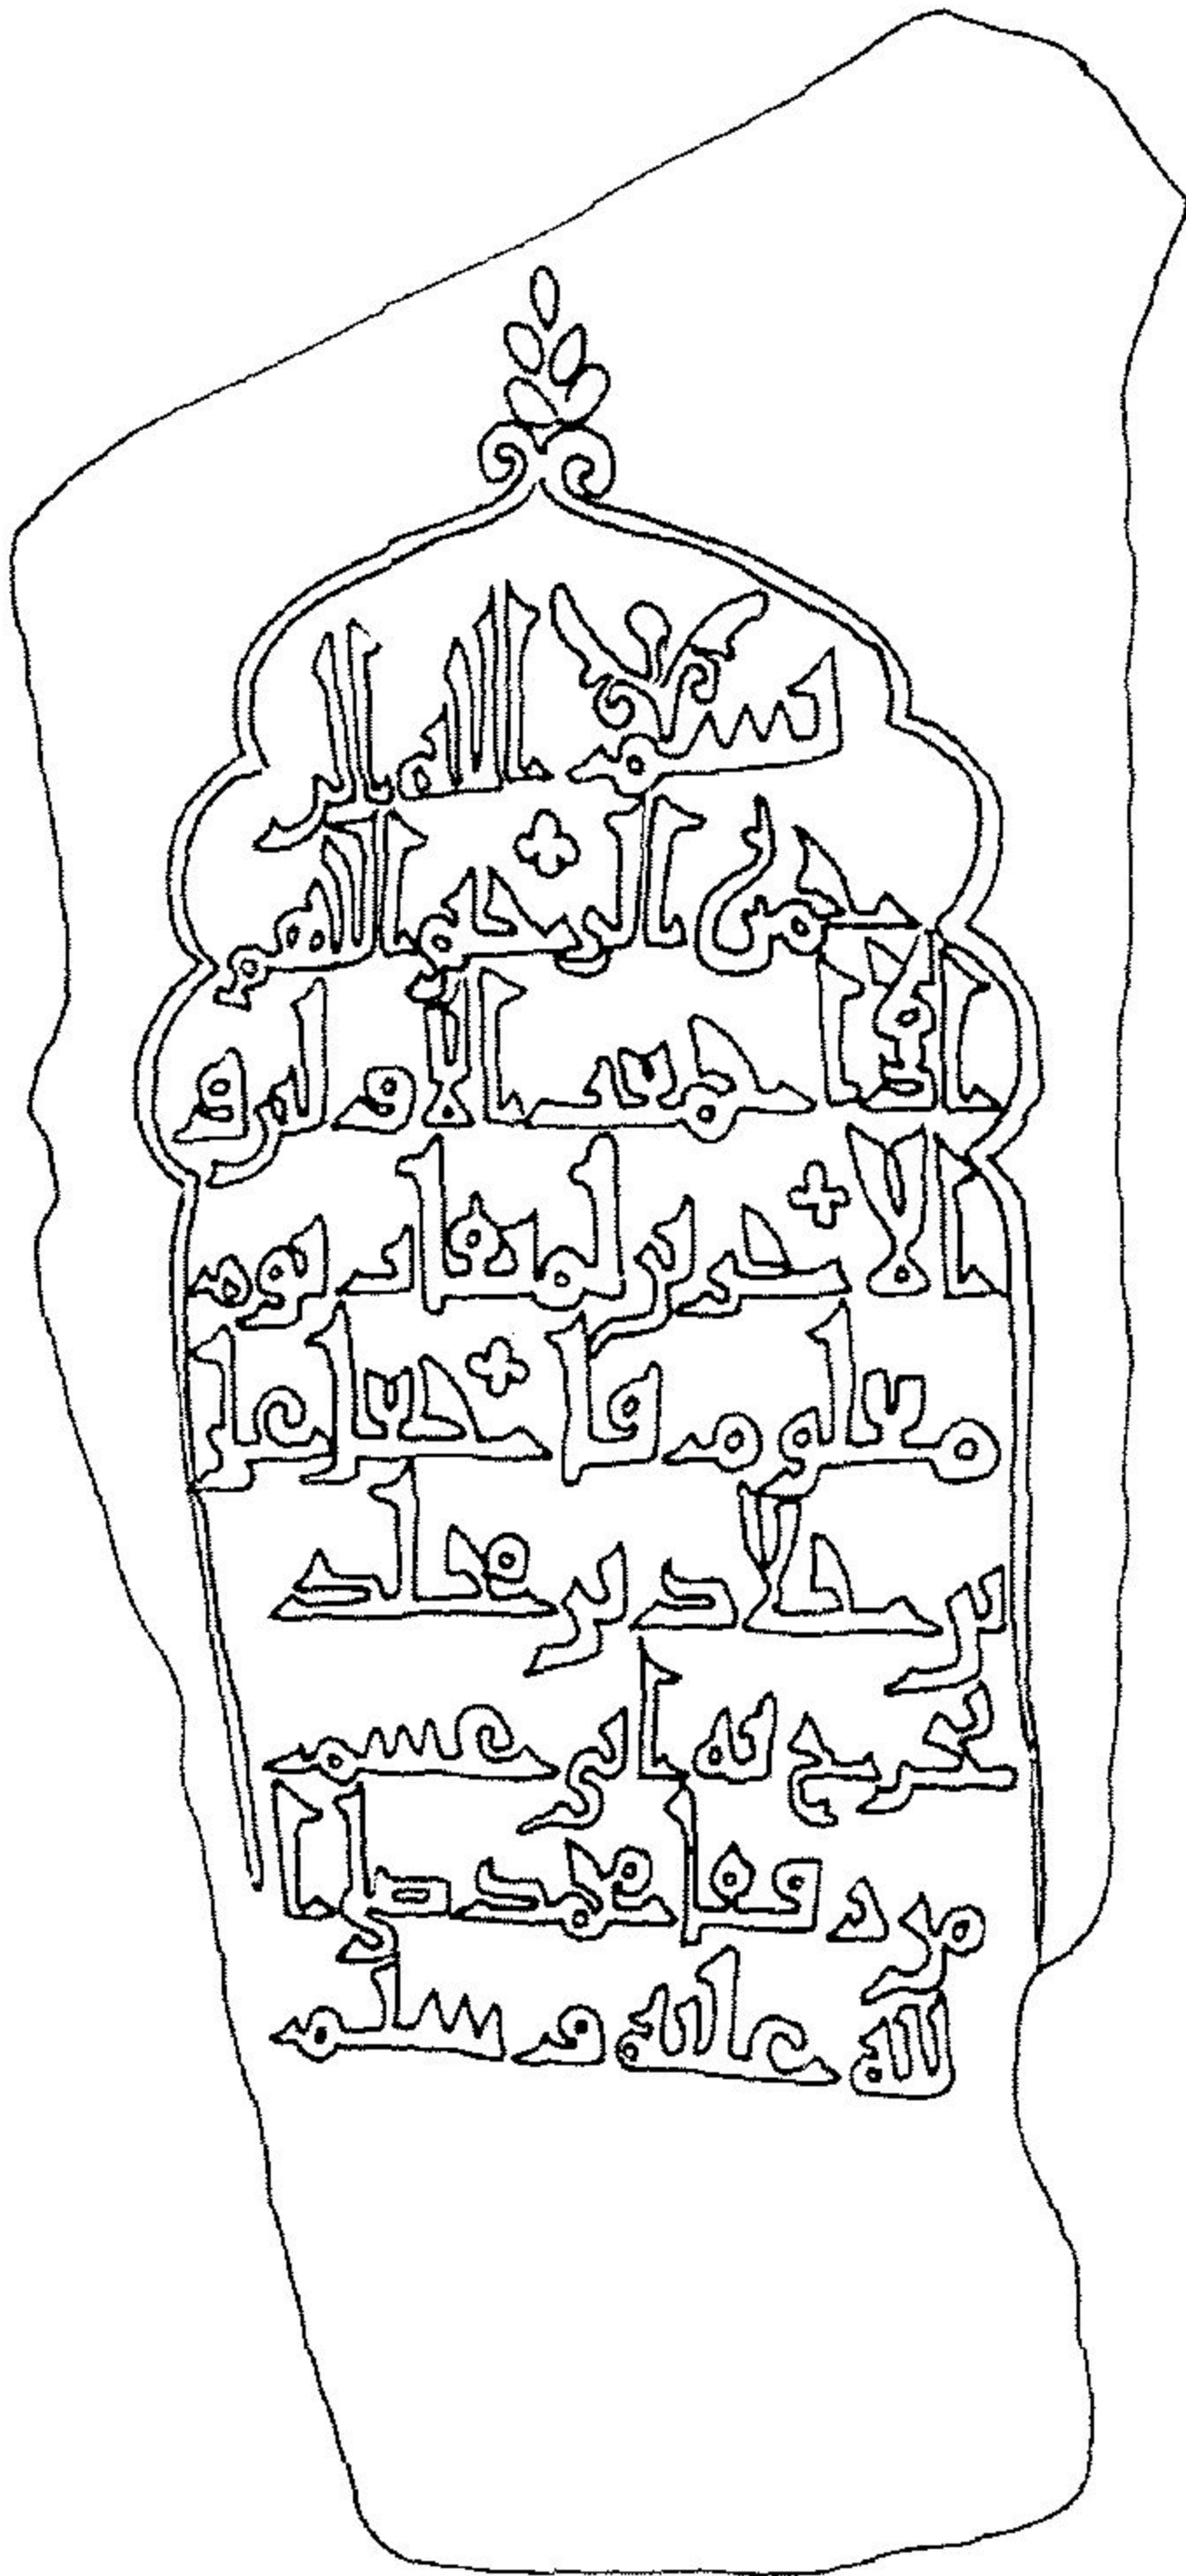 بسم الله الر
حمن الرحيم اللهم
اذا جمعت الاولين و
الاخرين لميقات يوم
معلوم فاجعل علي
بن خلاد بن مخلد
من رفقا محمد صلى ا
لله عليه وسلم